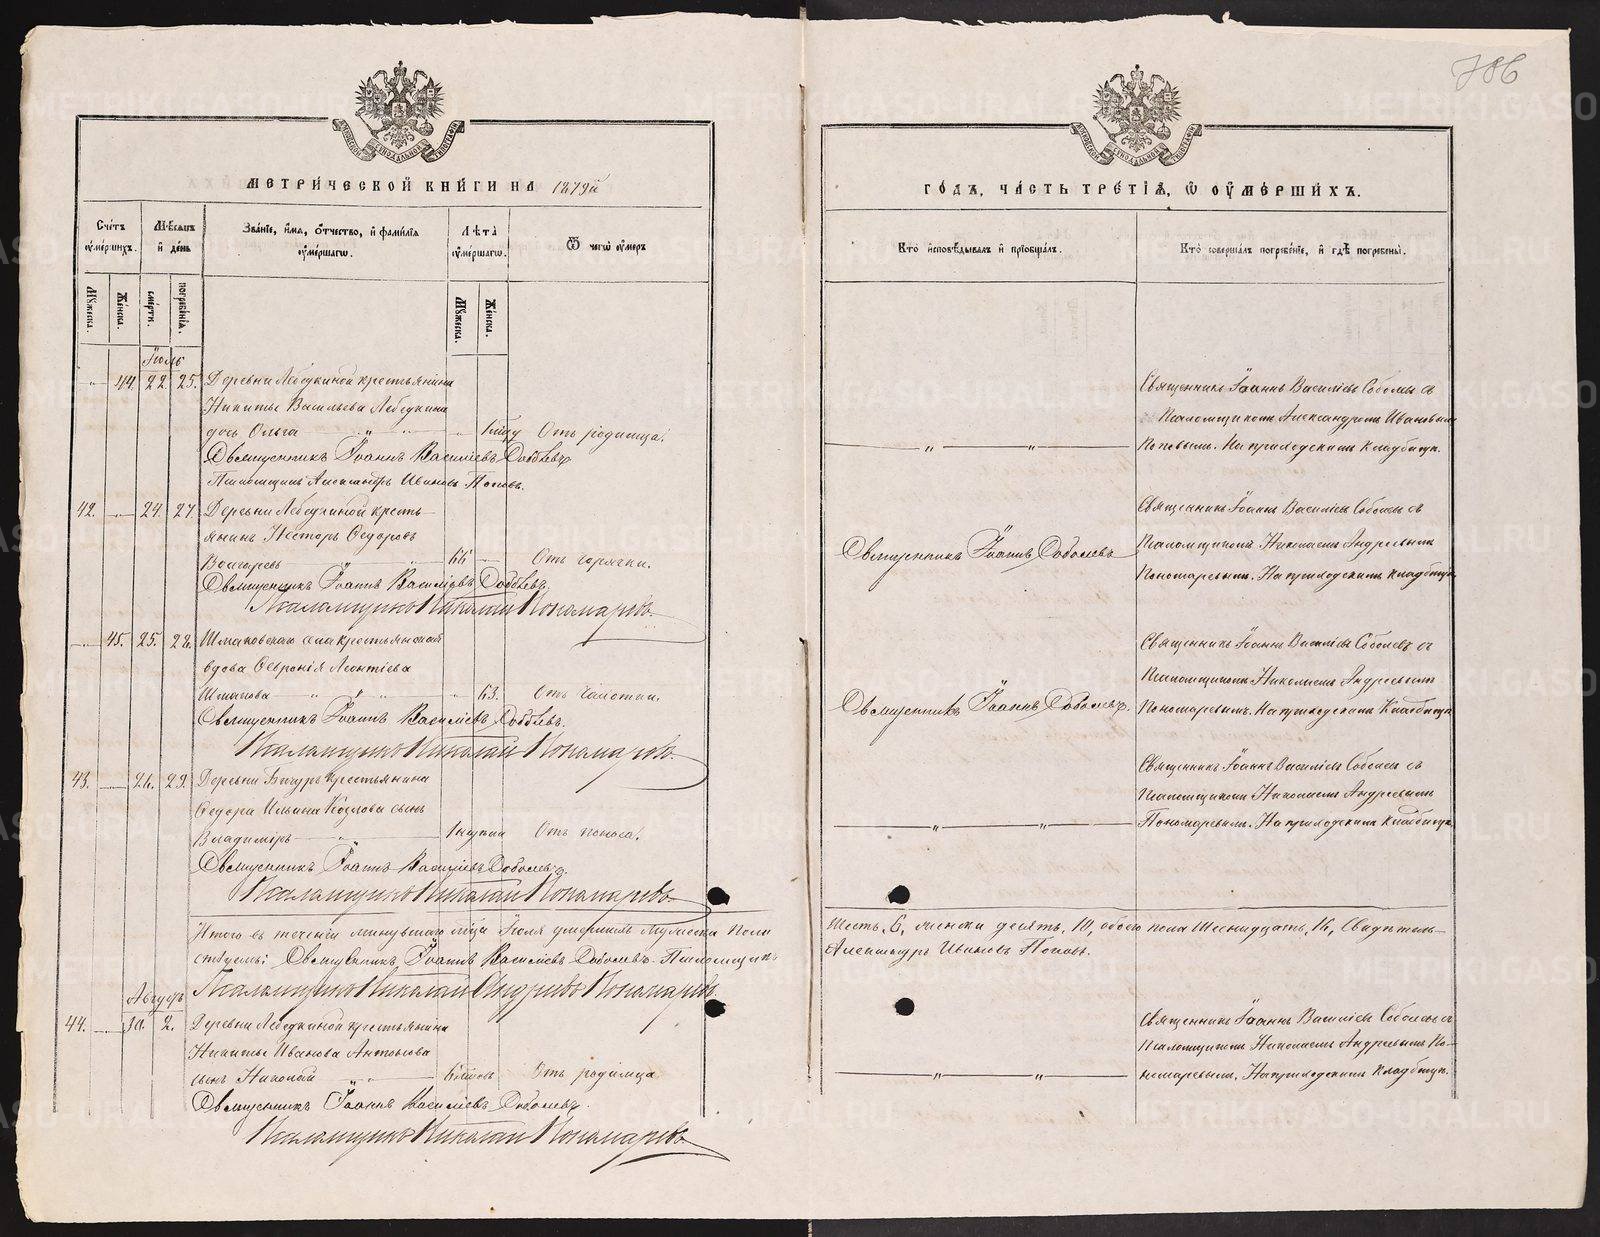 786
МЕТРИЧЕСКОЙ КНИГИ НА 1879й
ГОДЪ, ЧАСТЬ ТРЕТІѦ, Ѡ ОУМЕРШИХЪ.
Счетъ оумершихъ.
Мѣсѧцъ и день
Званіе, имѧ, отчество, и фамиліѧ оумершагѡ.
Лѣта оумершагѡ.
Ѿ чегѡ оумеръ
Кто исповѣдывалъ и пріобщалъ.
Кто совершалъ погребеніе, и гдѣ погребены.
Мужеска.
Женска.
смерти.
погребеніѧ.
Мужеска.
Женска.
Іюль
" 44. 22. 25. Деревни Лебедкиной крестьянина
Никиты Васильева Лебедкина
дочь Ольга " " Отъ родимца.
Священникъ Іоаннъ Василіевъ Соболевъ
Псаломщикъ Александръ Ивановъ Поповъ.
Священникъ Іоаннъ Василіевъ Соболевъ съ
Псаломщикомъ Александромъ Ивановымъ
Поповымъ. На приходскомъ кладбищѣ.
42. — 24. 27. Деревни Лебедкиной кресть-
янинъ Несторъ Ѳедоровъ
66 — Отъ горячки.
Священникъ Іоаннъ Василіевъ Соболевъ.
Псаломщикъ Николай Пономаревъ
Священникъ Іоаннъ Соболевъ
Священникъ Іоаннъ Василіевъ Соболевъ съ
Псаломщикомъ Николаемъ Андреевымъ
Пономаревымъ. На приходскомъ кладбищѣ.
— 45. 25. 28. Шмаковскаго села крестьянская
вдова Ѳевронія Леонтіева
Шмакова " " 63. Отъ чахотки.
Священникъ Іоаннъ Василіевъ Соболевъ.
Псаломщикъ Николай Пономаревъ.
Священникъ Іоаннъ Соболевъ.
Священникъ Іоаннъ Василіевъ Соболевъ съ
Псаломщикомъ Николаемъ Андреевымъ
Пономаревымъ. На приходскомъ кладбищѣ
43. — 26. 29. Деревни Бичуръ крестьянина
Ѳедора Ильина Козлова сынъ
Владиміръ " Отъ поноса.
Священникъ Іоаннъ Василіевъ Соболевъ.
Псаломщикъ Николай Пономаревъ
Священникъ Іоаннъ Василіевъ Соболевъ съ
Псаломщикомъ Николаемъ Андреевымъ
Пономаревымъ. На приходскомъ кладбищѣ.
Итого въ теченіи минувшаго м‍ѣсяца Іюля умершихъ Мужеска пола
Шесть, 6, женска десять, 10, обоего пола Шестнадцать, 16, Свидѣтель-
ствуемъ: Священникъ Іоаннъ Василіевъ Соболевъ. Псаломщикъ
Александръ Ивановъ Поповъ.
Псаломщикъ Николай Андреевъ Пономаревъ.
Августъ
44. — 30. 2. Деревни Лебедкиной крестьянина
Никиты Иванова Антонова
сынъ Николай " " Отъ родимца
Священникъ Іоаннъ Василіевъ Соболевъ.
Псаломщикъ Николай Пономаревъ
Священникъ Іоаннъ Василіевъ Соболевъ съ
Псаломщикомъ Николаемъ Андреевымъ По-
номаревымъ. На приходскомъ кладбищѣ.
METRIKI.GASO-URAL.RU